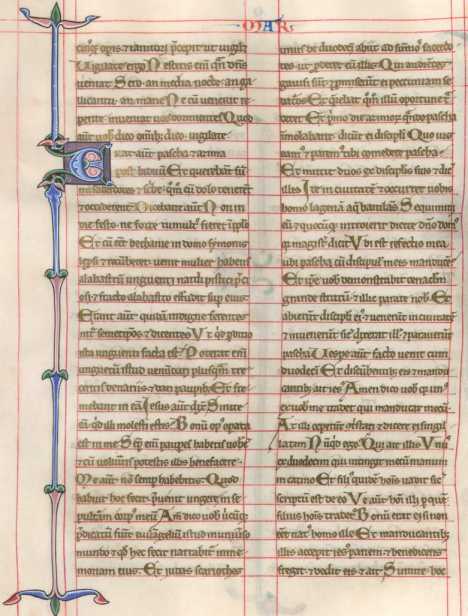 MAR
cuiq; opis ⁊ ianitori p̄cepit ut vigil&
Uigilate ergo Nescitis eni᷒ qn̄ dn̄s
ueniat Sero an media nocte an ga
llicantu an mane Ne cū uenerit re
pente inueniat uos dormientes Quod
aūt uob̄ dico omib; dico uigilate
Erat aūt pascha ⁊ azima
post biduū Et querebant sū
mi sacerdotes ⁊ scribe qm̄ eū dolo tenerēt
⁊ occiderent Dicebant aūt Non in
die festo ne forte tumult' fieret ī pplo
Et cū eēt bethanie in domo symonis
lepsi ⁊ recūberet uenit mulier habens
alabastrū unguenti nardi pistici p̄ci
osi ⁊ fracto alabastro effudit sup caput eius
Erant aūt quidam indigne ferentes
int' semetipsos ⁊ dicentes Ut qd pditio
ista unguenti facta est Poterat eni᷒
unguentū istud uenūdari plusqm tre
centis denariis ⁊ dari paupib; Et fre
mebant in eā Iesus aūt dix̄ Sinite
eā qd illi molesti estis Bonū op' opata
est in me Sēp eni᷒ paupes habetis uobc̄
⁊ cū uolūitis potestis illis benefacere
Me aūt nō semp habebitis Quod
habuit hec fecit p̄uenit ungere in se
pulturā corp' meū Am̄ dico uob̄ ubicūq;
p̄dicatū fuit euuageliū istud in uniuso
mundo ⁊ qd hec fecit narrabit' in me
moriam eius Et iudas scariothes
unus de duodeci᷒ abiit ad sūmos sacerdo
tes ut pderet eū illis Qui audientes
gauisi sūt ⁊ pmiserūt ei pecuniam se
daturos Et querebat qm̄ illū oportune t̄
deret Et p̄mo die azimor qn̄ pascha
īmolabant dicūt ei discipli Quo uis
eam' ⁊ parem' tibi comedere pascha
Et mittit duos ex disciplis suis ⁊ dic̄
illis Ite in ciuitatē ⁊ occurret uobis
homo lagenā aq̄ baiulās Sequimini
eū ⁊ quocūq; introierit dicite dn̄o dom'
q magist' dicit Ubi est refectio mea
ubi pascha cū disciplis meis manducē
Et ipē uob̄ demonstrabit cenaclm̄
grande stratū ⁊ illic parate nob̄ Et
abierunt discipli ei' ⁊ uenerūt in ciuitatē
⁊ inuenerūt sic̄ dixerat ill' ⁊ parauerūt
pascha Uespe aūt facto uenit cum
duodeci᷒ Et discūbentib; eis ⁊ mandu
cantib; ait ies' Amen dico uob̄ q un'
ex uob̄ me tradet qui manducat mecū
At illi ceperūt 9tristari ⁊ dicere ei singil
latim Nūqd ego Qui ait illis Un'
ex duodecim qui intingit mecū manum
in catino Et fili' quidē hōis uadit sic̄
scriptū est de eo Ve aūt hōi illi p quē
filius hōis tradet' Bonū erat ei si non
eēt nat' homo ille Et manducantib;
illis accepit ies' panem ⁊ benedicens
fregit ⁊ dedit eis ⁊ ait Sumite hoc